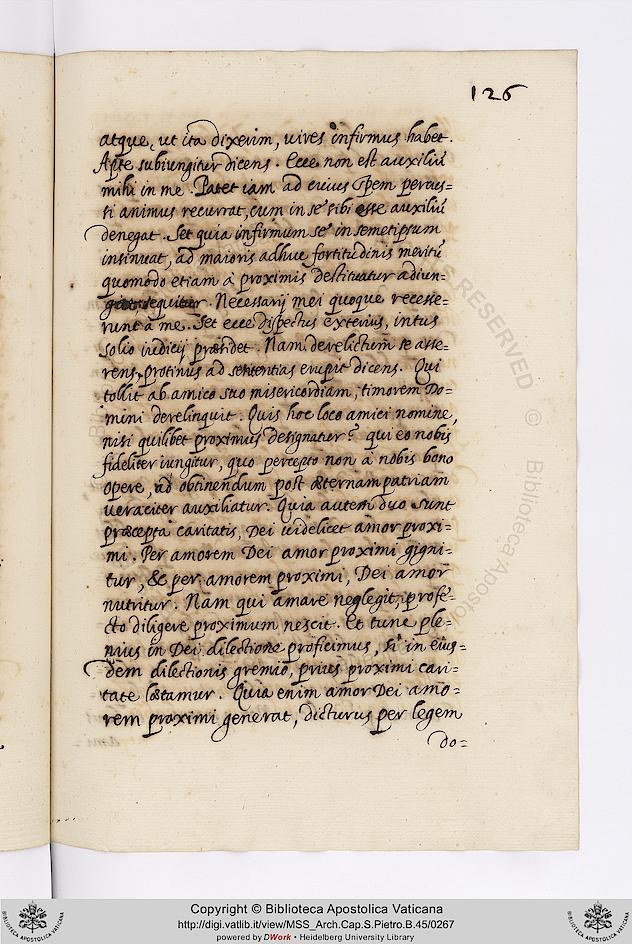 126
atque, ut ita dixerim, vires infirmus habet.
Apte subiungitur dicens. Ecce non est auxiliũ
mihi in me. Patet iam ad cuius spem percus=
si animus recurrat, cum in se sibi esse auxiliũ
denegat. Set quia infirmum se in semetipsum
insinuat, ad maioris adhuc fortitudinis meritũ
quomodo etiam à proximis destituatur adiun-
sequitur. Necessarij mei quoque recesse=
runt à me. Set ecce dispectus exterius, intus
solio iudicij præsidet. Nam derelictum se asse=
rens, protinus ad sententias erupit dicens. Qui
tollit ab amico suo misericordiam, timorem Do=
mini derelinquit. Quis hoc loco amici nomine,
nisi quilibet proximus designatur? qui eo nobis
fideliter iungitur, quo percepto non a nobis bono
opere, ad obtinendum post æternam patriam
veraciter auxiliatur. Quia autem duo sunt
præcepta caritatis, Dei videlicet amor proxi=
mi. Per amorem Dei amor proximi gigni=
tur, & per amorem proximi, Dei amor
nutritur. Nam qui amare neglegit, profe=
cto diligere proximum nescit. Et tunc ple=
nius in Dei dilectione proficimus, si in eius=
dem dilectionis gremio, prius proximi cari=
tate lætamur. Quia enim amor Dei amo=
rem proximi generat, dicturus per legem
do=
RESERVED © Biblioteca Aposto
Copyright © Biblioteca Apostolica Vaticana
http://digi.vatlib.it/view/MSS_Arch.Cap.S.Pietro.B.45/0267
powered by DWork • Heidelberg University Library